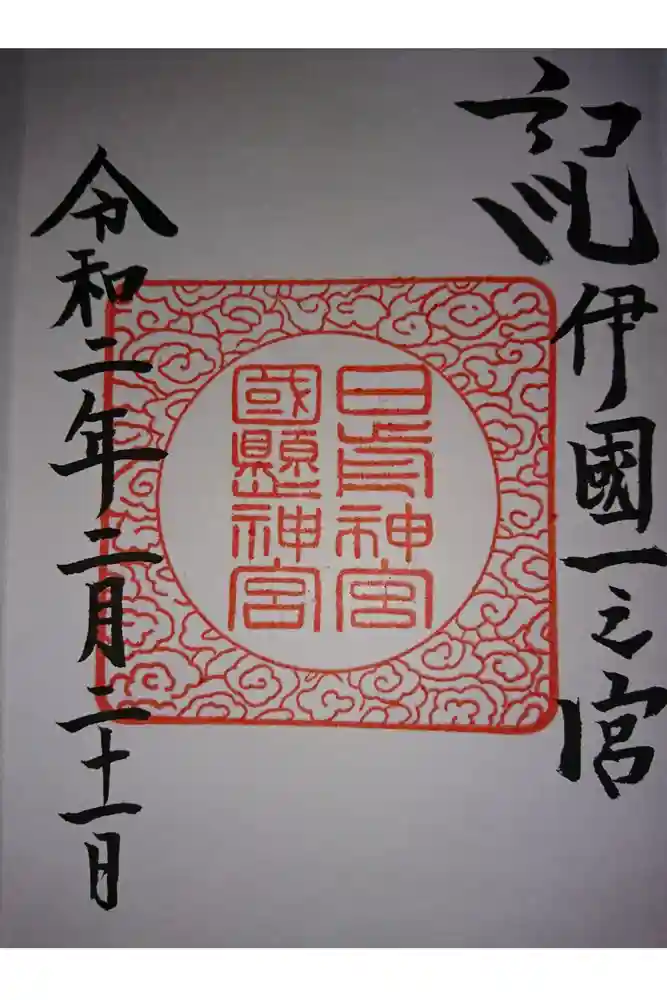 紀伊國一之宮
日前神宮
國懸神宮
令和二年二月二十一日